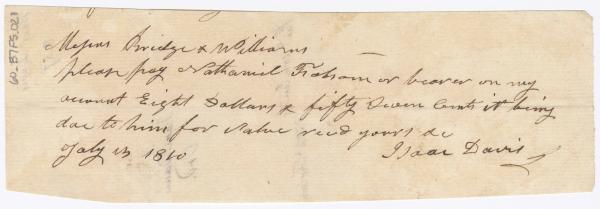 Messrs Bridge & Williams
please pay Nathaniel Folsom or bearer on my
account Eight Dollars & fifty Seven Cents it being
due to him for Value recd yours &c
July 13 1810 Isaac Davis
60-B7F5.021